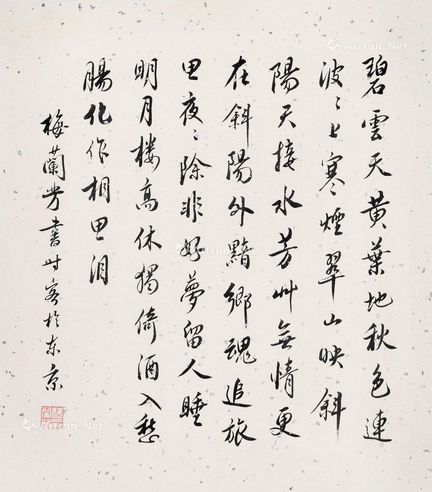 碧雲天黃葉地秋色連
波〻上寒煙翠山映斜
陽天接水芳艸無情更
在斜陽外黯鄉魂追旅
思夜〻除非好夢留人睡
明月樓高休獨倚酒入愁
腸化作相思淚
梅蘭芳書时客於東京
Artron.Net